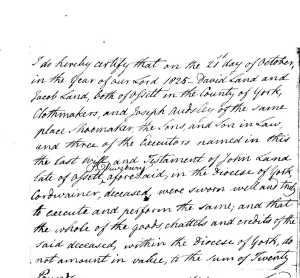 I do hereby certify that on the 21st day of October,
in the Year of our Lord 1825 – David Land and
Jacob Land, both of Ossett in the County of York,
Clothmakers, and Joseph Audsley of the same
place Shoemaker, the Sons and Son in Law,
and three of the Executors named in this
the Last Will and Testament of John Land
late of Ossett aforesaid, in the Diocese of York
Cordwainer, deceased, were sworn well and truly
to execute and perform the same; and that
the whole of the goods, chattels and credits of the
said deceased, within the Diocese of York, do
not amount in value, to the sum of Twenty
Pounds